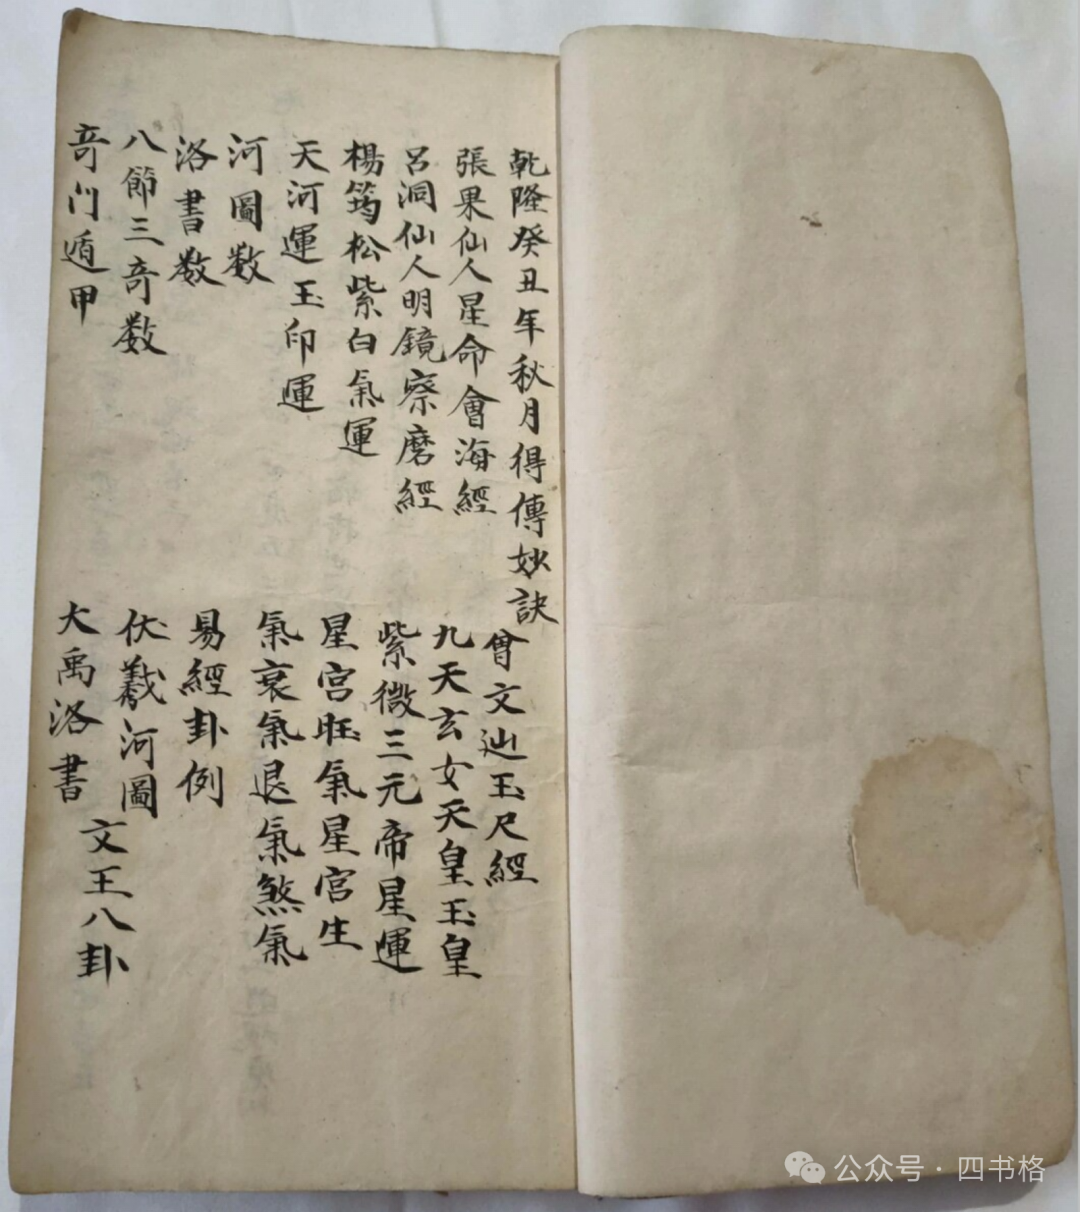 乾隆癸丑年秋月得傳妙訣
張果仙人星命會海經
呂洞仙人明鏡察磨經
楊筠松紫白氣運
天河運玉印運
河圖数
洛書数
八節三奇数
奇门遁甲
曾文辿玉尺經
九天玄女天皇玉皇
紫微三元帝星運
星宫旺氣星宫生
氣衰氣退氣煞氣
易經卦例
伏羲河圖
大禹洛書
文王八卦
公众号·四书格